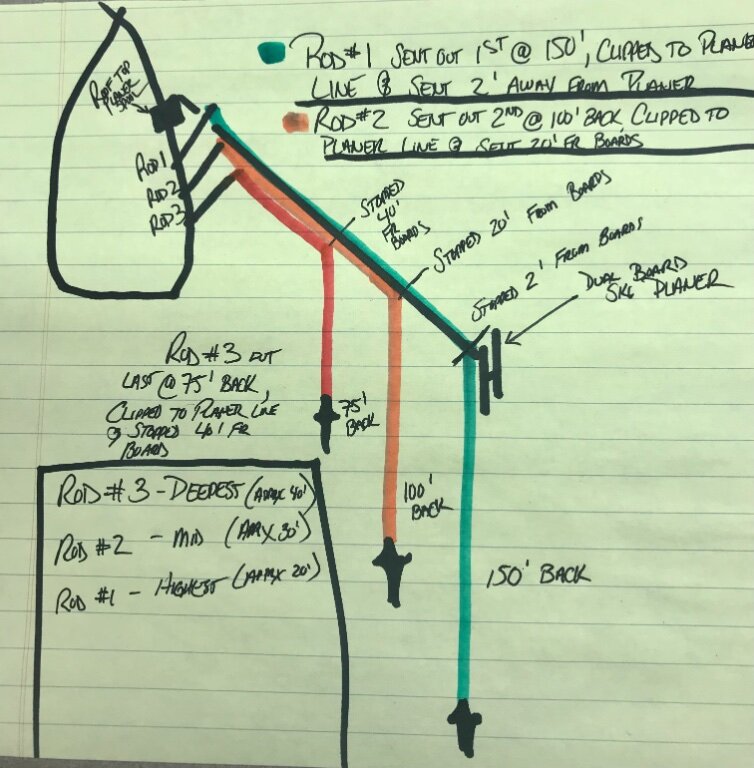 ROD #1 SENT OUT 1ST @ 150', CLIPPED TO PLANER
LINE & SENT 2' AWAY FROM PLANER
ROD #2 SENT OUT 2ND @ 100' BACK, CLIPPED TO
PLANER LINE & SENT 20' FR BOARDS
ROOF TOP
PLANER
ROD 1
ROD 2
ROD 3
STOPPED
40'
FR
BOARDS
STOPPED 20' FROM BOARDS
STOPPED 2' FROM BOARDS
DUAL BOARD
SKI PLANER
ROD #3 OUT
LAST @ 75' BACK,
CLIPPED TO PLANER LINE
& STOPPED 40' FR
BOARD
75'
BACK
100'
BACK
150' BACK
ROD #3 - DEEPEST (APPX 40')
ROD #2 - MID (APPX 30')
ROD #1 - HIGHEST (APPX 20')